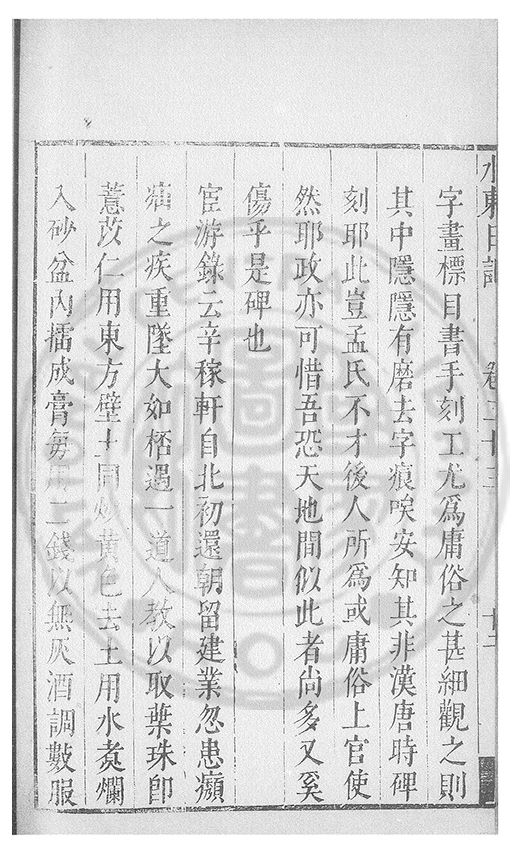 水東日記 卷二十三 十二
字畫標目書手刻工尤爲庸俗之甚細觀之則
其中隱隱有磨去字痕唉安知其非漢唐時碑
刻耶此豈孟氏不才後人所爲或庸俗上官使
然耶政亦可惜吾恐天地間似此者尚多又奚
傷乎是碑也
宦游錄云辛稼軒自北初還朝留建業忽患㿗
疝之疾重墜大如桮遇一道人教以取葉珠卽
薏苡仁用東方壁土同炒黃色去土用水煮爛
入砂盆內擂成膏每用二錢以無灰酒調數服